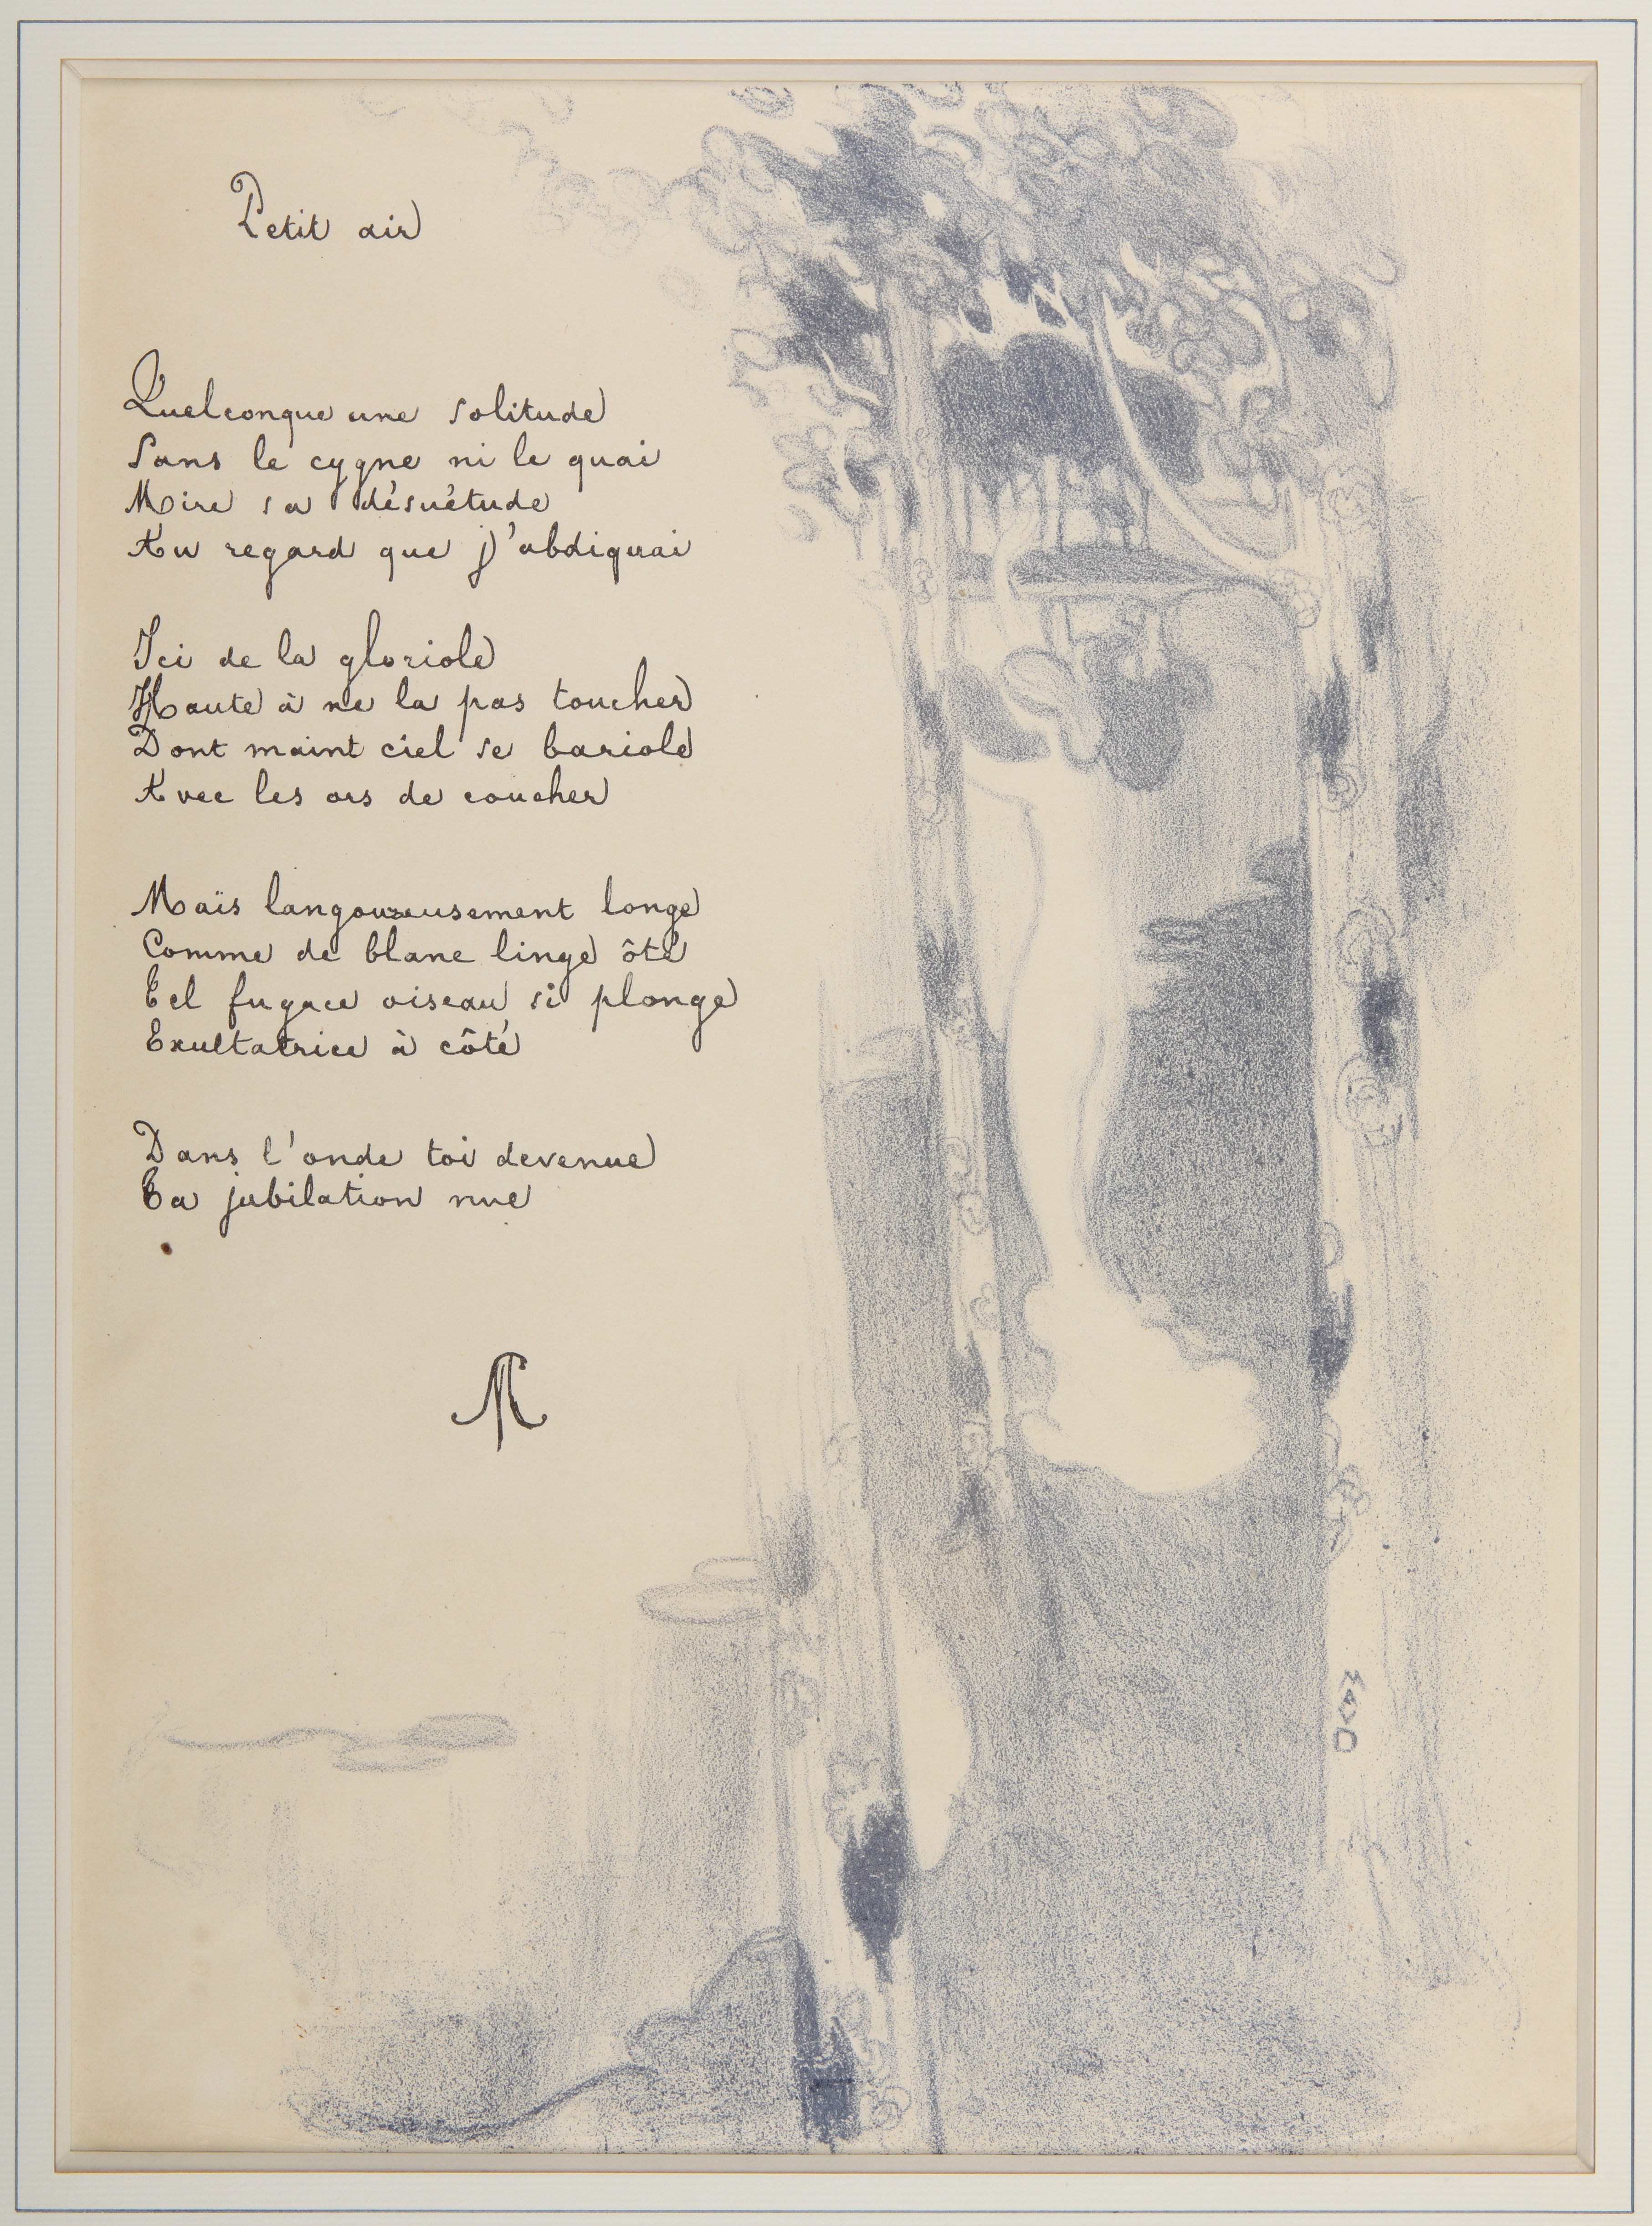 Petit air
Quelconque une solitude
Sans le cygne ni le quai
Mire sa désuétude
Au regard que j'abdiquai
Ici de la gloriole
Haute à ne la pas toucher
Dont maint ciel se bariole
Avec les ors de coucher
Maïs langoureusement longe
Comme de blanc linge ôté
Tel fugace oiseau si plonge
Exultatrice à côté
Dans l'onde toi devenue
Ta jubilation nue
M
MAVD